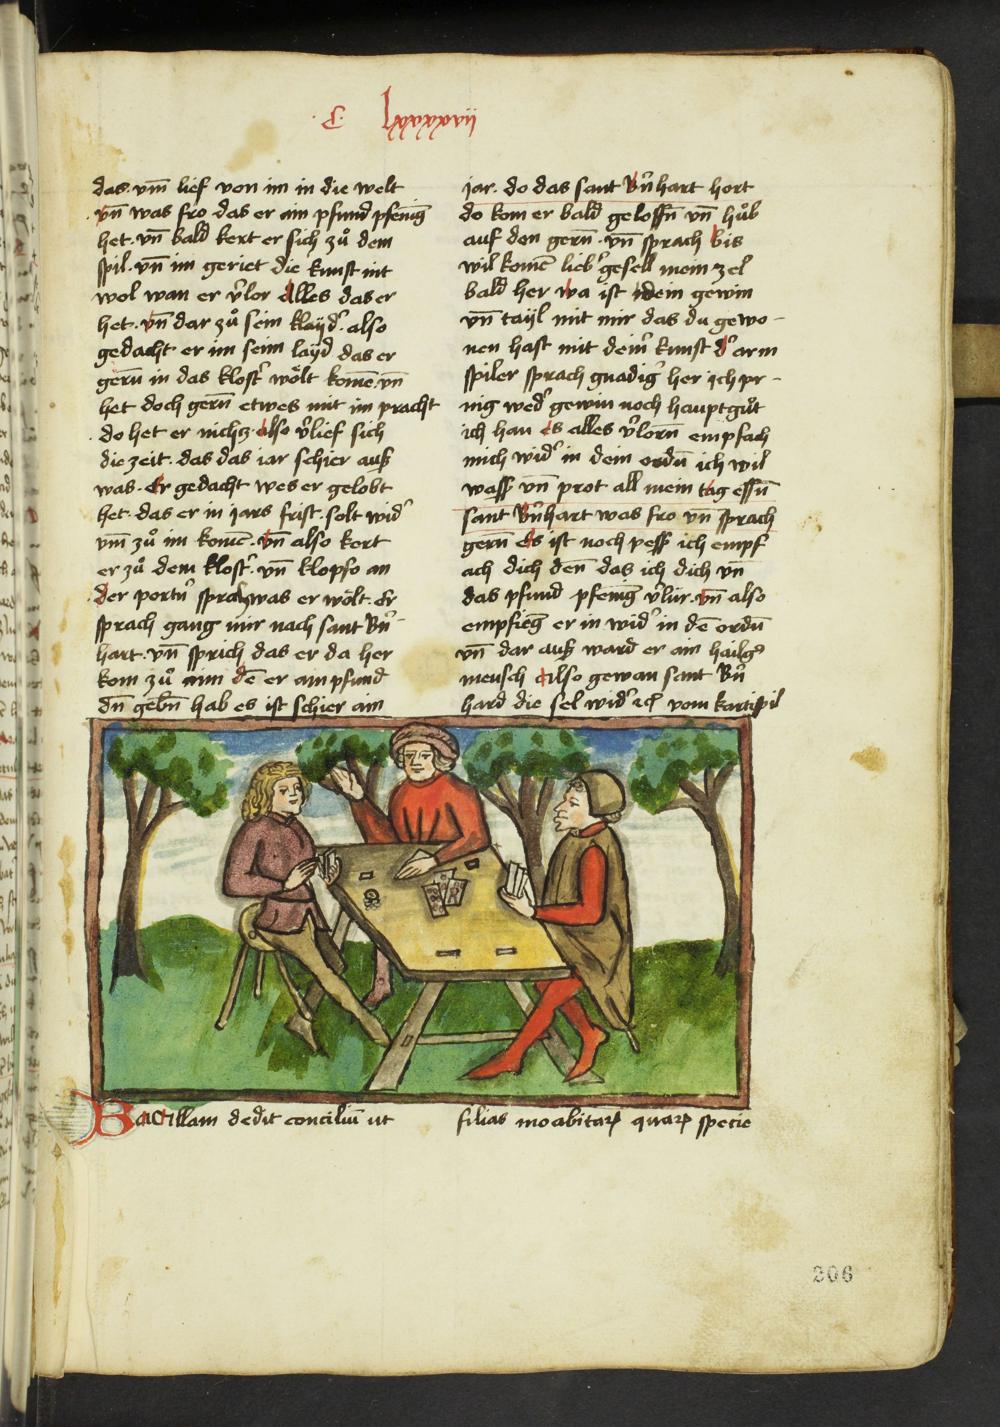 C lxxxxvii
das. vm̄ lief von im in die welt
vn̄ was fro das er ain pfund pfenīg
het. vn̄ bald kert er sich zů dem
spil. vn̄ im geriet die kunst nit
wol wan er v̓lor alles das er
het. vn̄ dar zů sein klayd. also
gedacht er im seim layd das er
gern̄ in das klost̓ wo̊lt komē. vn̄
het doch gern̄ etwes mit im pracht
do het er nichz. also v̓lief sich
die zeit. das das iar schier auß
was. Er gedacht wes er gelobt
het. das er in jars frist. solt wid̓
vm̄ zů im komē. vn̄ also kert
er zů dem klost̓. vn̄ klopfo an
der portn̄ sprach was er wo̊lt. Er
sprach gang mir nach sant Bn̓
hart. vn̄ sprich das er da her
kom zů aim dē er ain pfund
dn̄ gebn̄ hab es ist schier ain
jar. do das sant Bn̓hart hort
do kom er bald geloffn̄ vn̄ hůb
auf den gern̄. vn̄ sprach bis
wilkomē lieb̓ gesell mein zel
bald her wa ist dein gewin
vn̄ tayl mit mir das du gewo-
nen hast mit deim̓ kunst d̓ arm
spiler sprach gnadig̓ her ich pr-
nig wed̓ gewin noch hauptgůt
ich han es alles v̓lorn̄ empfach
mich wid̓ in dem ordn̄ ich wil
wass̓ vn̄ prot all mein tag essn̄
sant Bn̓hart was fro vn̄ sprach
gern̄ Es ist noch pess̓ ich empf
ach dich den̄ das ich dich vn̄
das pfund pfenīg v̓lür. vn̄ also
empfieng er in wid̓ in dē ordn̄
vn̄ dar auß ward er ain hailg̓
mensch also gewan sant Bn̓
hard die sel wid̓ vom kartispil
Bacillam dedit conciliū ut filias moabitaꝝ quaꝝ specie
206